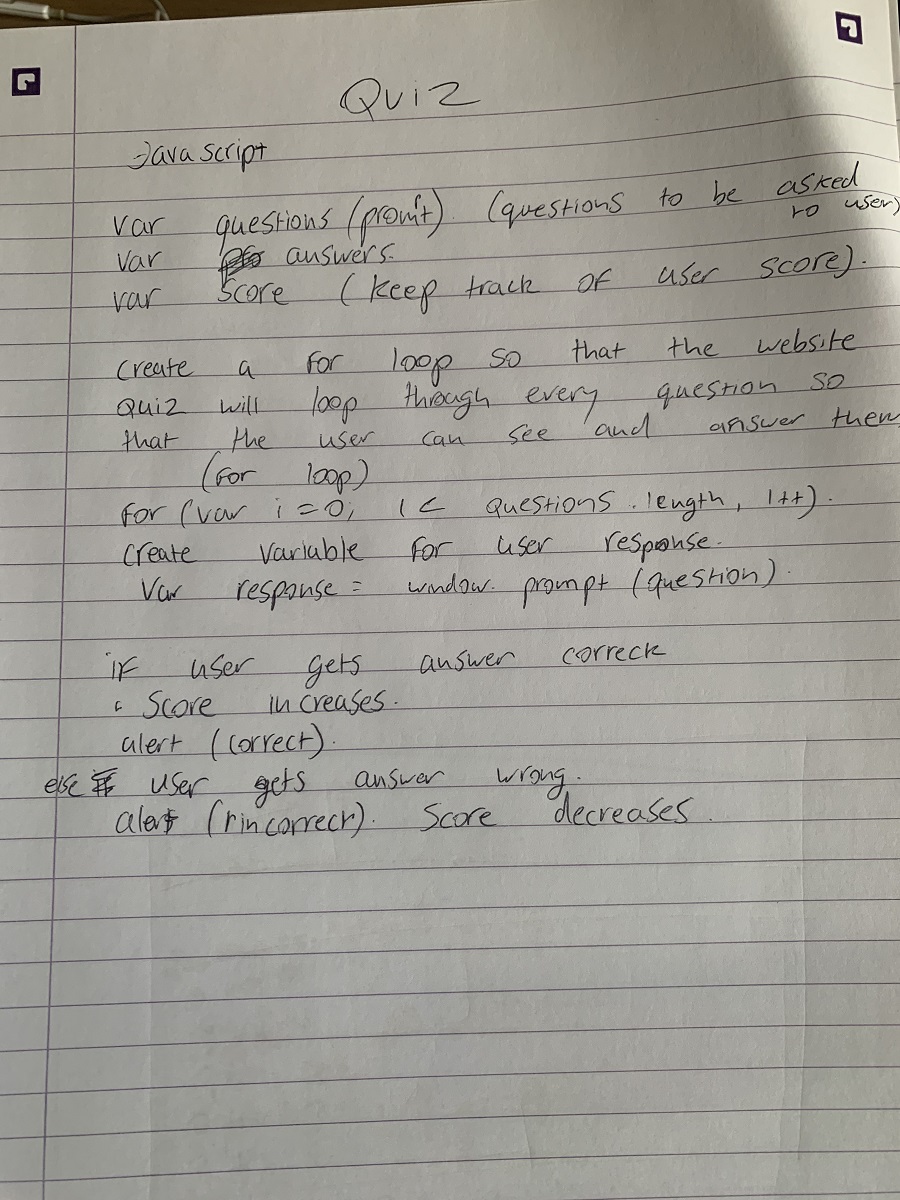 Quiz
Javascript
var questions (promt). (questions to be asked
to user)
var answers.
var score (keep track of user score).
create a for loop so that the website
quiz will loop through every question so
that the user can see and answer them
(for loop)
for (var i = 0; i < questions.length, i++).
create variable for user response.
var response = window.prompt (question).
if user gets answer correck
score increases.
alert (correct).
else user gets answer wrong.
alert (incorrect). Score decreases.